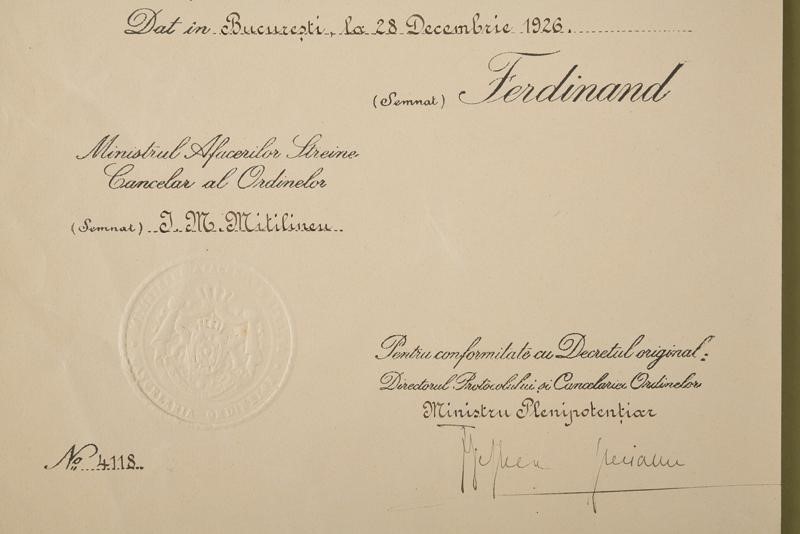 Dat in Bucureşti, la 28 Decembrie 1926.
(Semnat) Ferdinand
Ministrul Afacerilor Streine
Cancelar al Ordinelor
(Semnat) I. M. Mitilineu
Pentru conformitate cu Decretul original:
Directorul Protocolului şi Cancelariei Ordinelor
Ministru Plenipotenţiar
No. 4118